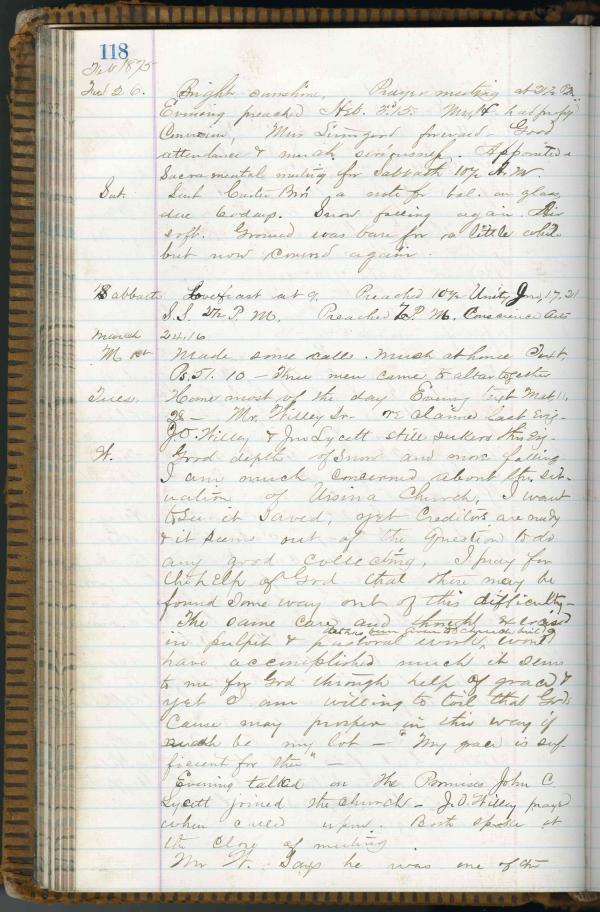 118
Feb 1875
Tues 26. Bright sunshine. Prayer meeting at 2½ P.M.
Evening preached Heb. 3.15. Mr. H. had
Conversion, Miss forward. Good
attendance & much seriousness. Appointed a
Sacramental meeting for Sabbath 10½ A.M.
Sat. Sent Carter Bro's a note for bal. on glass
due 60 days. Snow falling again Air
soft. Ground was bare for a little while
but now covered again.
Sabbath Lovefeast at 9. Preached 10½ Unity Jno. 17.21
S.S. 2½ P.M. Preached 7 P.M. Conscience Acts
March 24.16
M 1st Made some calls. Much at home Text.
Ps. 51. 10 — Three men came to altar together
Tues. Home most of the day Evening text Mat. 11,
28 — Mr. Willey Sr. reclaimed last Evg.
J.D. Willey & Jno Lycett still seekers this Evg.
W. Good depth of Snow and more falling
I am much concerned about the sit-
uation of Church, I want
to see it saved, yet Creditors are needy
& it seems out of the question to do
any good collecting, I pray for
the help of God that there may be
found some way out of this difficulty —
The same care and thought exercised
that has been given to church build'g
in pulpit & pastoral work, would
have accomplished much it seems
to me for God through help of grace &
yet I am willing to toil that God's
Cause may prosper in this way if
such be my lot — "My grace is suf-
ficient for thee" —
Evening talked on the Promises John C.
Lycett joined the church — J.D. Willey prayed
when called upon. Both spoke at
the close of meeting.
Mr W. Says he was one of the